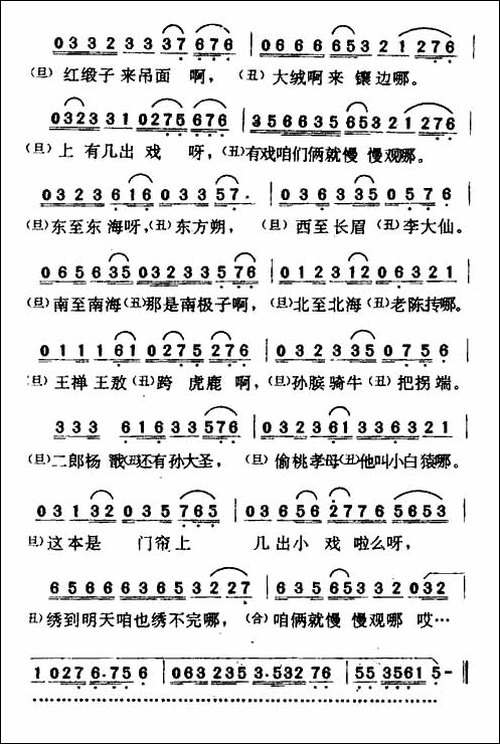 0 3 3 2 3 3 3 7 6 7 6 | 0 6 6 6 6 6 5 3 2 1 2 7 6 |
(旦)红缎子来吊面 啊, (丑)大绒啊来 镶边哪。
0 3 2 3 3 1 0 2 7 5 6 7 6 | 3 5 6 6 3 5 6 5 3 2 1 2 7 6 |
(旦)上 有几出 戏 呀, (丑)有戏咱们俩就慢 慢观哪。
0 3 2 3 6 1 6 0 3 3 5 7. | 0 3 6 3 3 5 0 6 7 6 |
(旦)东至东 海呀,(丑)东方朔, (旦)西至长眉 (丑)李大仙。
0 6 5 6 3 5 0 3 2 3 3 5 7 6 | 0 1 2 3 1 2 0 6 3 2 1 |
(旦)南至南海(丑)那是南极子啊, (旦)北至北海(丑)老陈抟哪。
0 1 1 1 6 1 0 2 7 5 2 7 6 | 0 3 2 3 3 5 0 7 5 6 |
(旦)王禅王敖(丑)跨 虎鹿 啊, (旦)孙膑骑牛(丑)把拐端。
3 3 3 6 1 6 3 3 5 7 6 | 0 3 2 3 6 1 3 3 6 3 2 1 |
(旦)二郎杨 戬(丑)还有孙大圣, (旦)偷桃孝母(丑)他叫小白猿哪。
0 3 1 3 2 0 3 5 7 6 5 | 0 3 6 5 6 2 7 7 6 5 6 5 3 |
旦)这本是 门帘上 几出小 戏 啦么呀,
6 5 6 6 6 3 6 5 3 2 2 7 | 6 3 5 6 5 3 2 2 0 3 2
丑)绣到明天咱也绣不完哪, (合)咱俩就慢 慢观哪 哎…
1 0 2 7 6 . 7 5 6 | 0 6 3 2 3 5 3 . 5 3 2 7 6 | 5 5 3 5 6 1 5 - ||